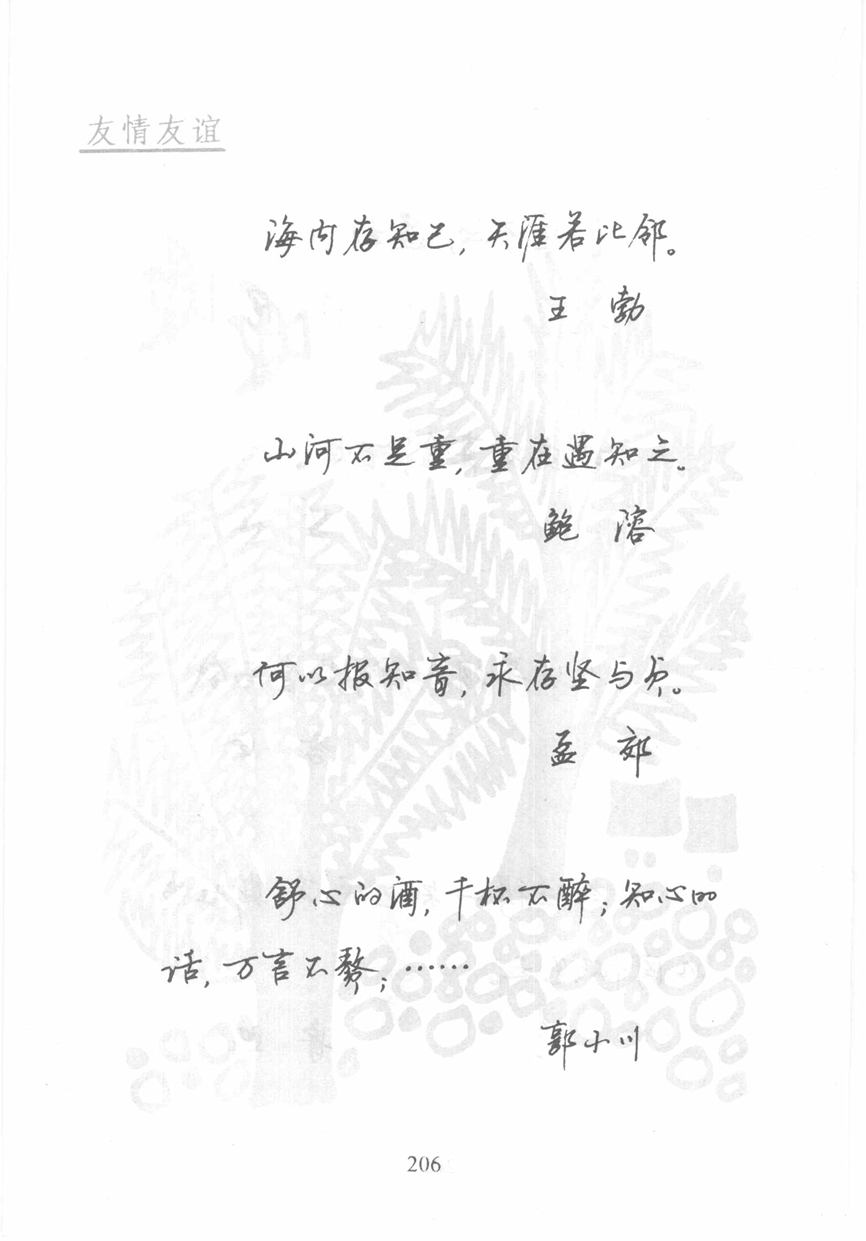 友情友谊
海内存知己，天涯若比邻。
王 勃
山河不足重，重在遇知己。
鲍 溶
何以报知音，永存坚与贞。
孟 郊
舒心的酒，千杯不醉；知心的
话，万言不赘；……
郭小川
206